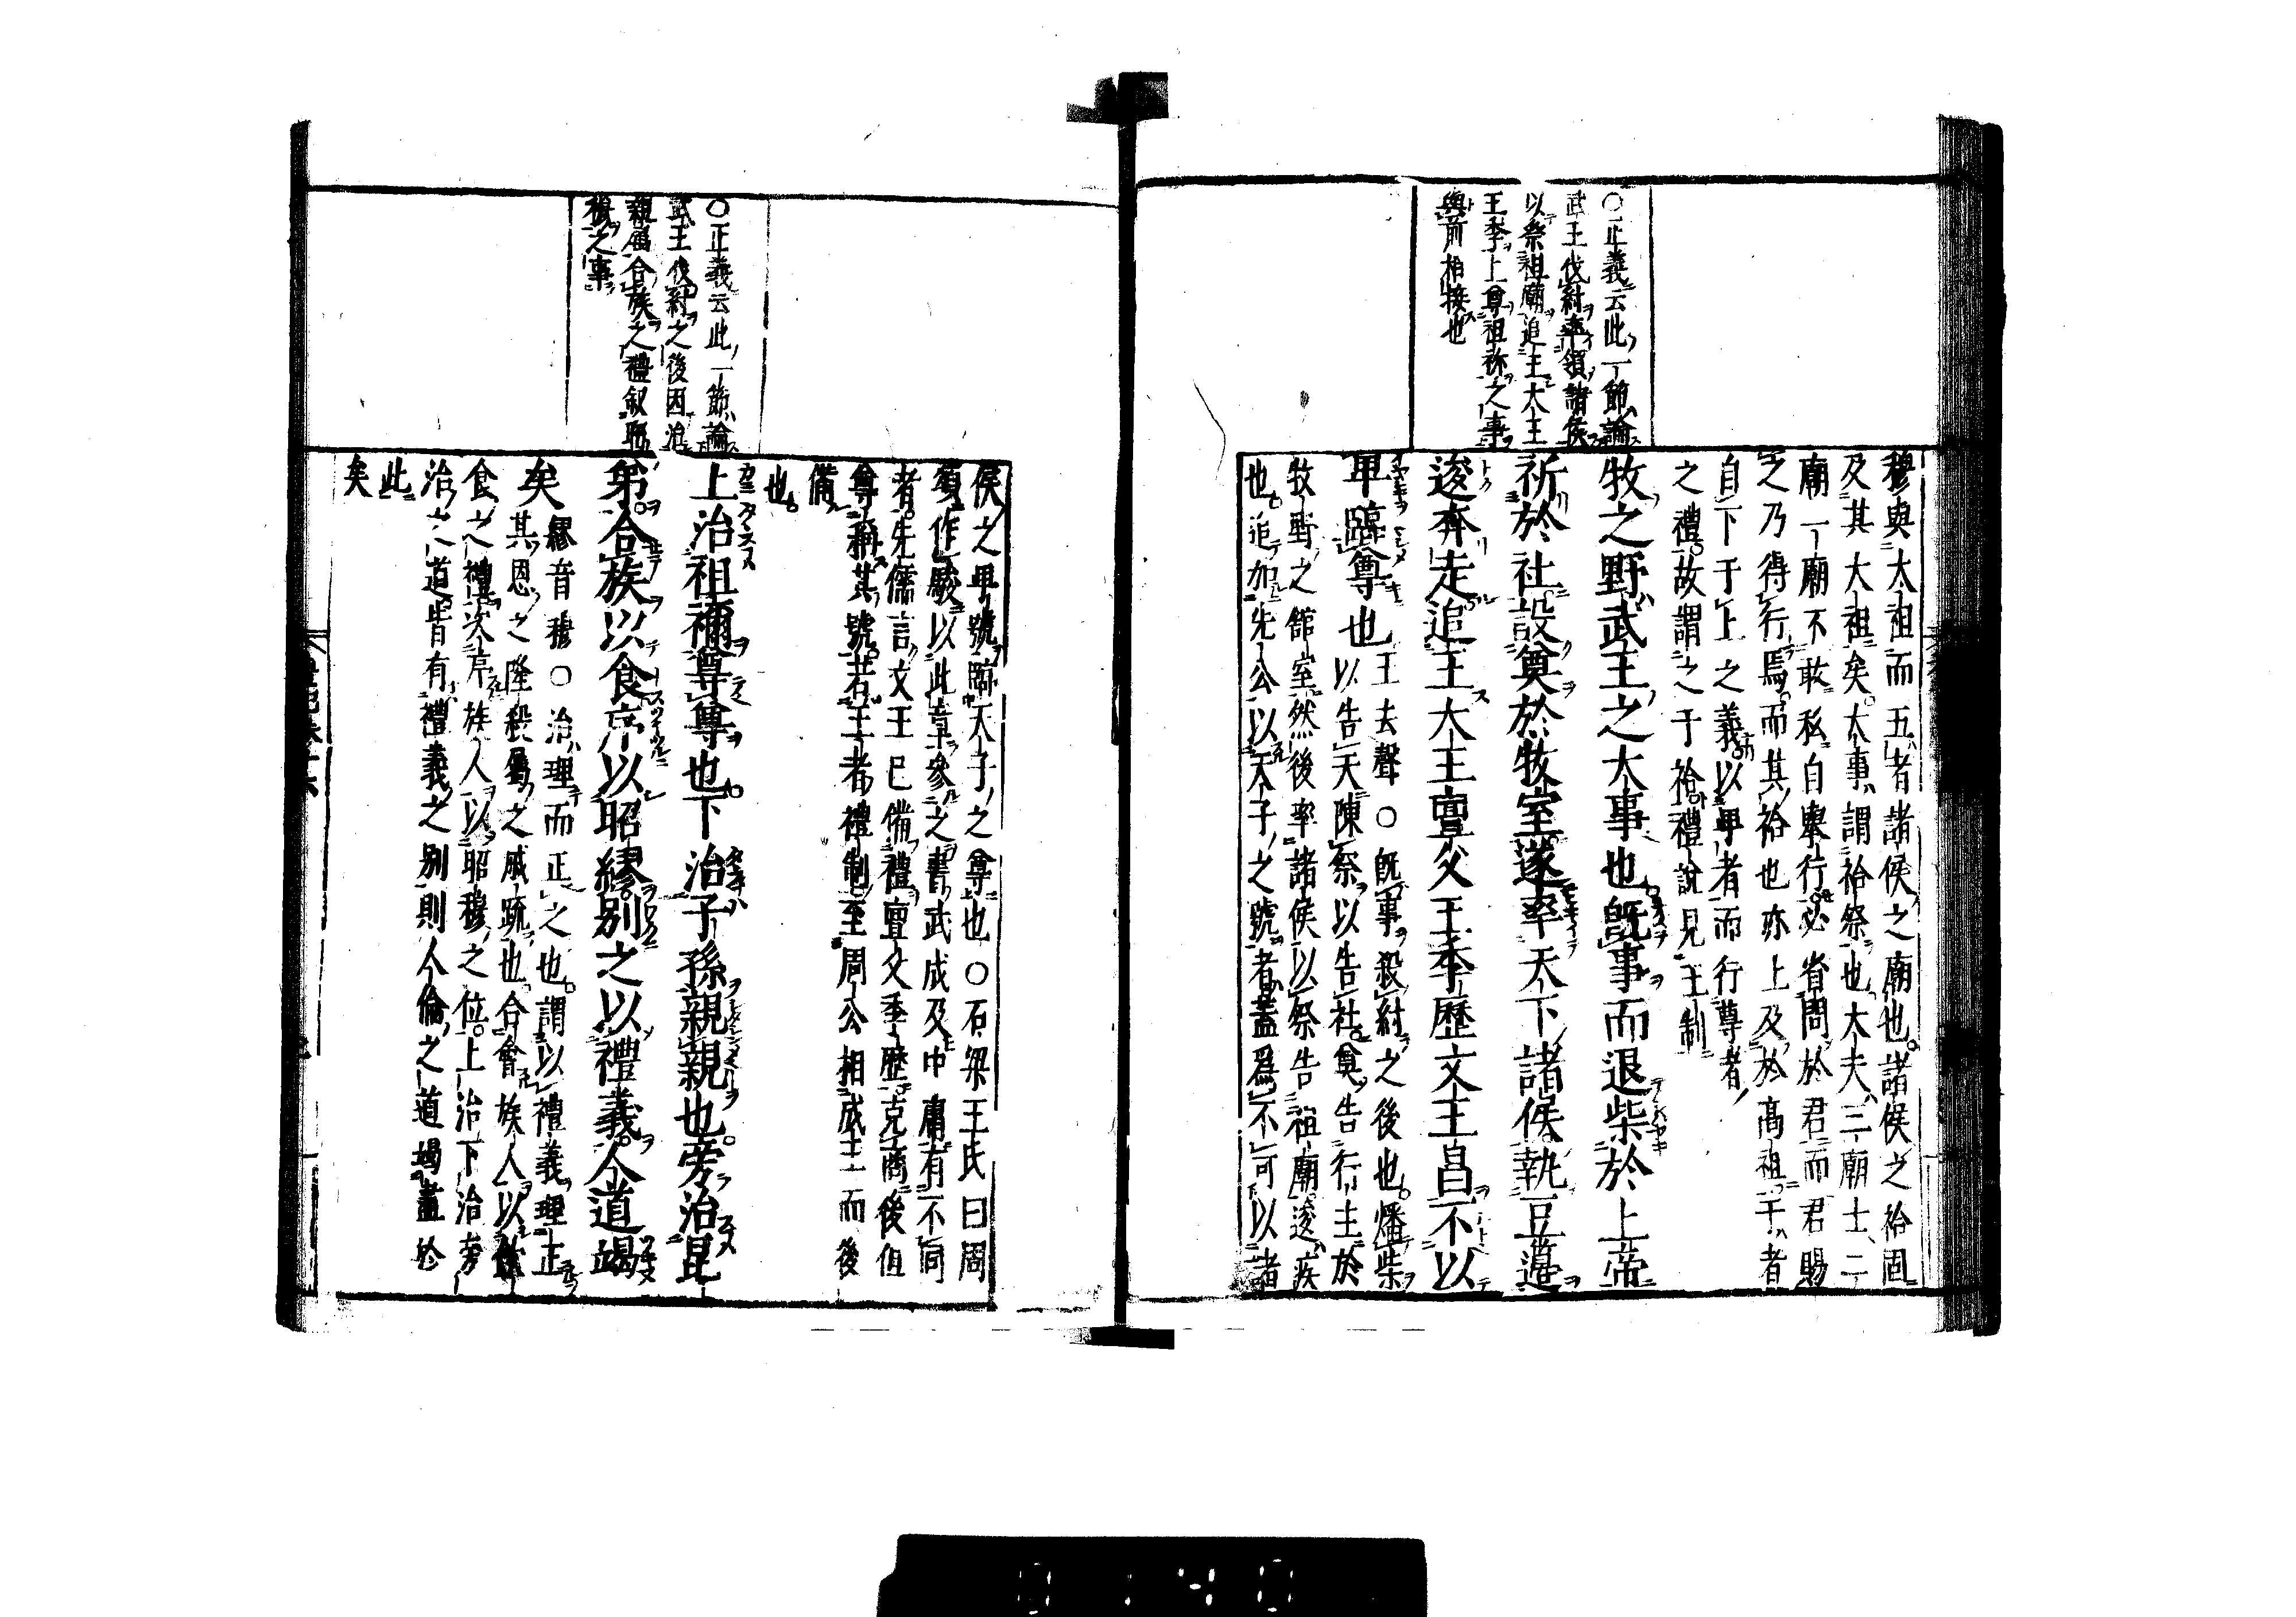 ○正義云此一節論
武王伐紂率領諸侯
以祭祖廟追王大王
王季上尊祖祢之事
與前相接也
穆與大祖而五者諸侯之廟也諸侯之祫固
及其大祖矣大事謂祫祭也大夫三廟士二
廟一廟不敢私自舉行必省問於君而君賜
之乃得行焉而其祫也亦上及於高祖干者
自下于上之義以卑者而行尊者
之禮故謂之于祫禮說見王制
牧之野武王之大事也既事而退柴於上帝
祈於社設奠於牧室遂率天下諸侯執豆籩
逡奔走追王大王亶父王季歷文王昌不以
卑臨尊也王去聲○既事殺紂之後也燔柴
以告天陳祭以告社奠告行主於
牧野之館室然後率諸侯以祭告祖廟逡疾
也追加先公以天子之號者蓋爲不可以諸
○正義云此一節論
武王伐紂之後因治
親屬合族之禮叙昭
穆之事
侯之卑號臨天子之尊也○石梁王氏曰周
頌作駿以此章參之書武成及中庸有不同
者先儒言文王已備禮亶父季歷克商後但
尊稱其號若王者禮制至周公相成王而後
備
也
上治祖禰尊尊也下治子孫親親也旁治昆
弟合族以食序以昭繆別之以禮義人道竭
矣繆音穆○治理而正之也謂以禮義理正
其恩之隆殺屬之戚疏也合會族人以飲
食之禮次序族人以昭穆之位上治下治旁
治之道皆有禮義之別則人倫之道竭盡於
此
矣